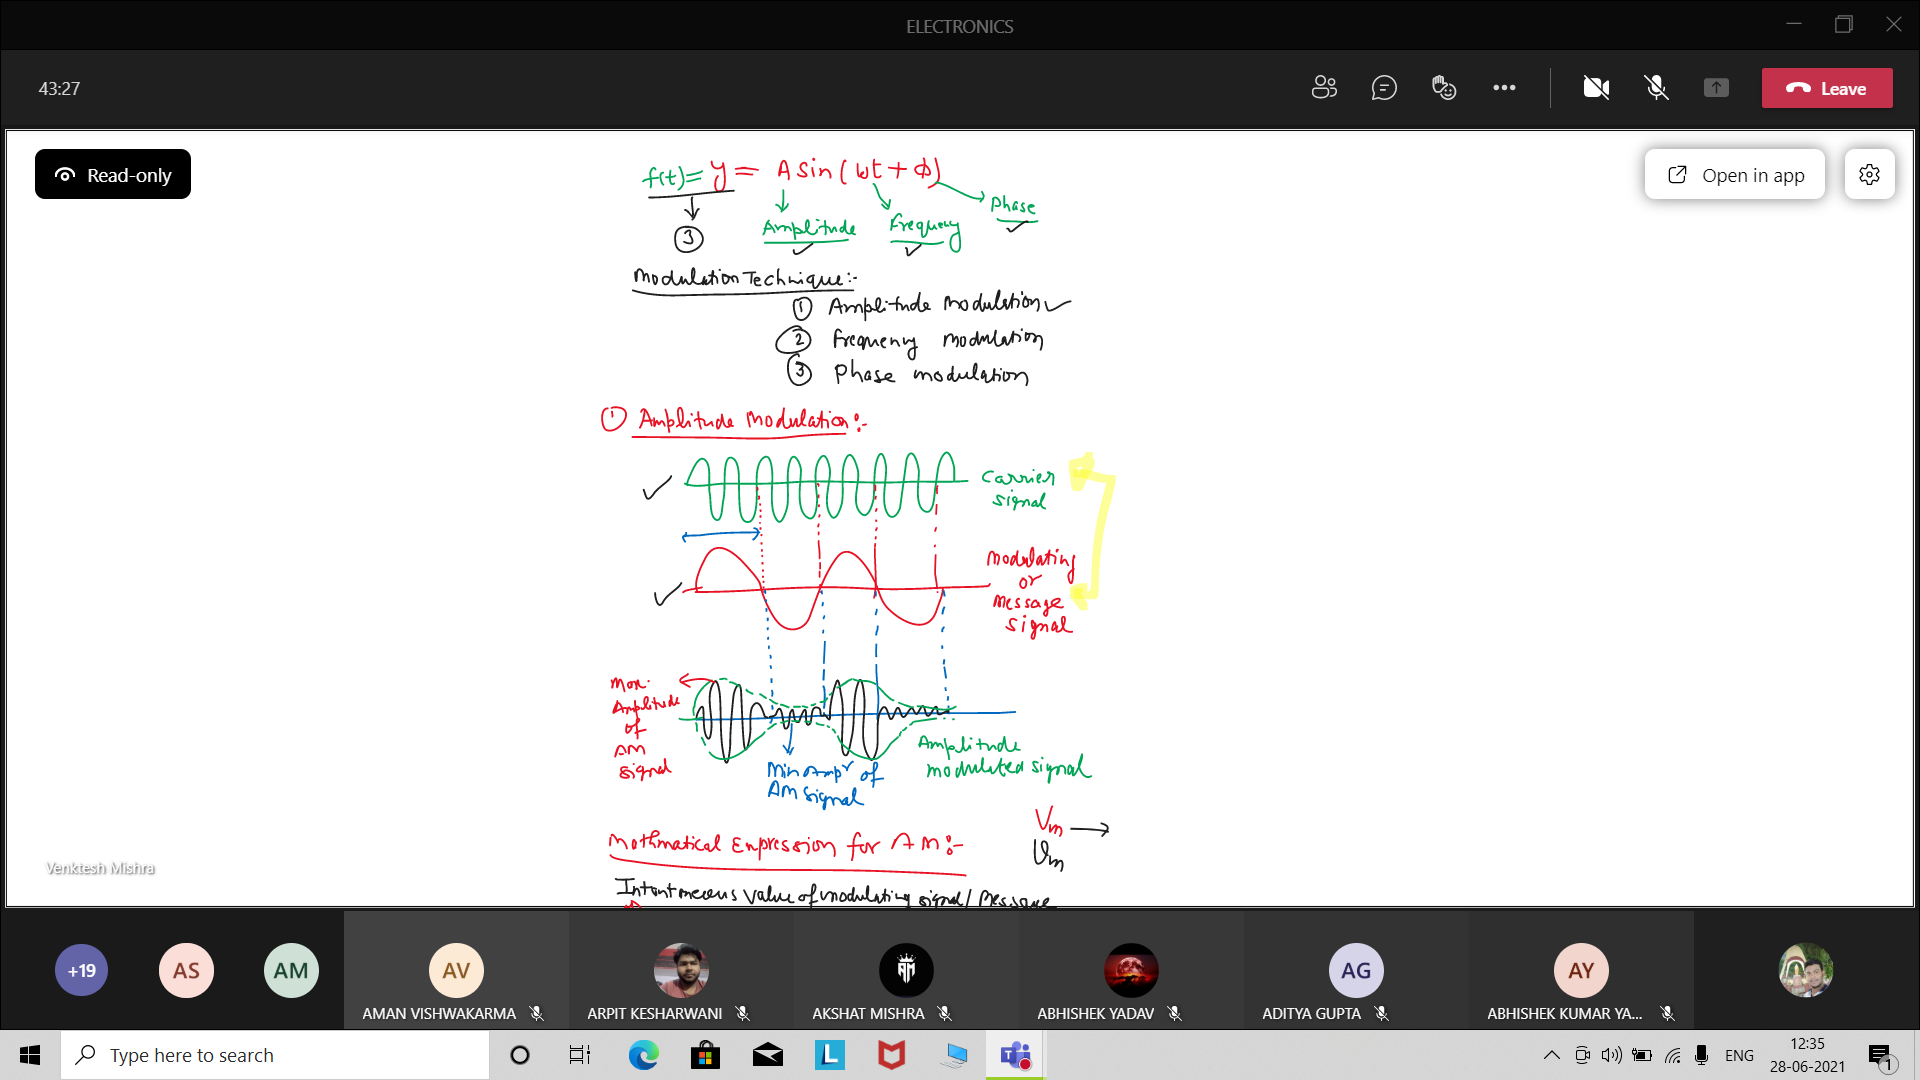 ELECTRONICS
43:27
Leave
Read-only
Open in app
f(t)= y = A sin (wt + φ)
Phase
3 Amplitude Frequency
Modulation Technique:-
1 Amplitude Modulation
2 Frequency modulation
3 Phase modulation
1 Amplitude Modulation:-
Carrier
signal
Modulating
or
Message
signal
Max.
Amplitude
of
AM
signal
Amplitude
modulated signal
Min Ampr of
AM signal
Vm
Vm
Mothmatical Expression for AM:-
Intantneous value of modulating signal / Message
Venktesh Mishra
+19
AS
AM
AV
AG
AY
AMAN VISHWAKARMA
ARPIT KESHARWANI
AKSHAT MISHRA
ABHISHEK YADAV
ADITYA GUPTA
ABHISHEK KUMAR YA...
Type here to search
ENG
12:35
28-06-2021
1